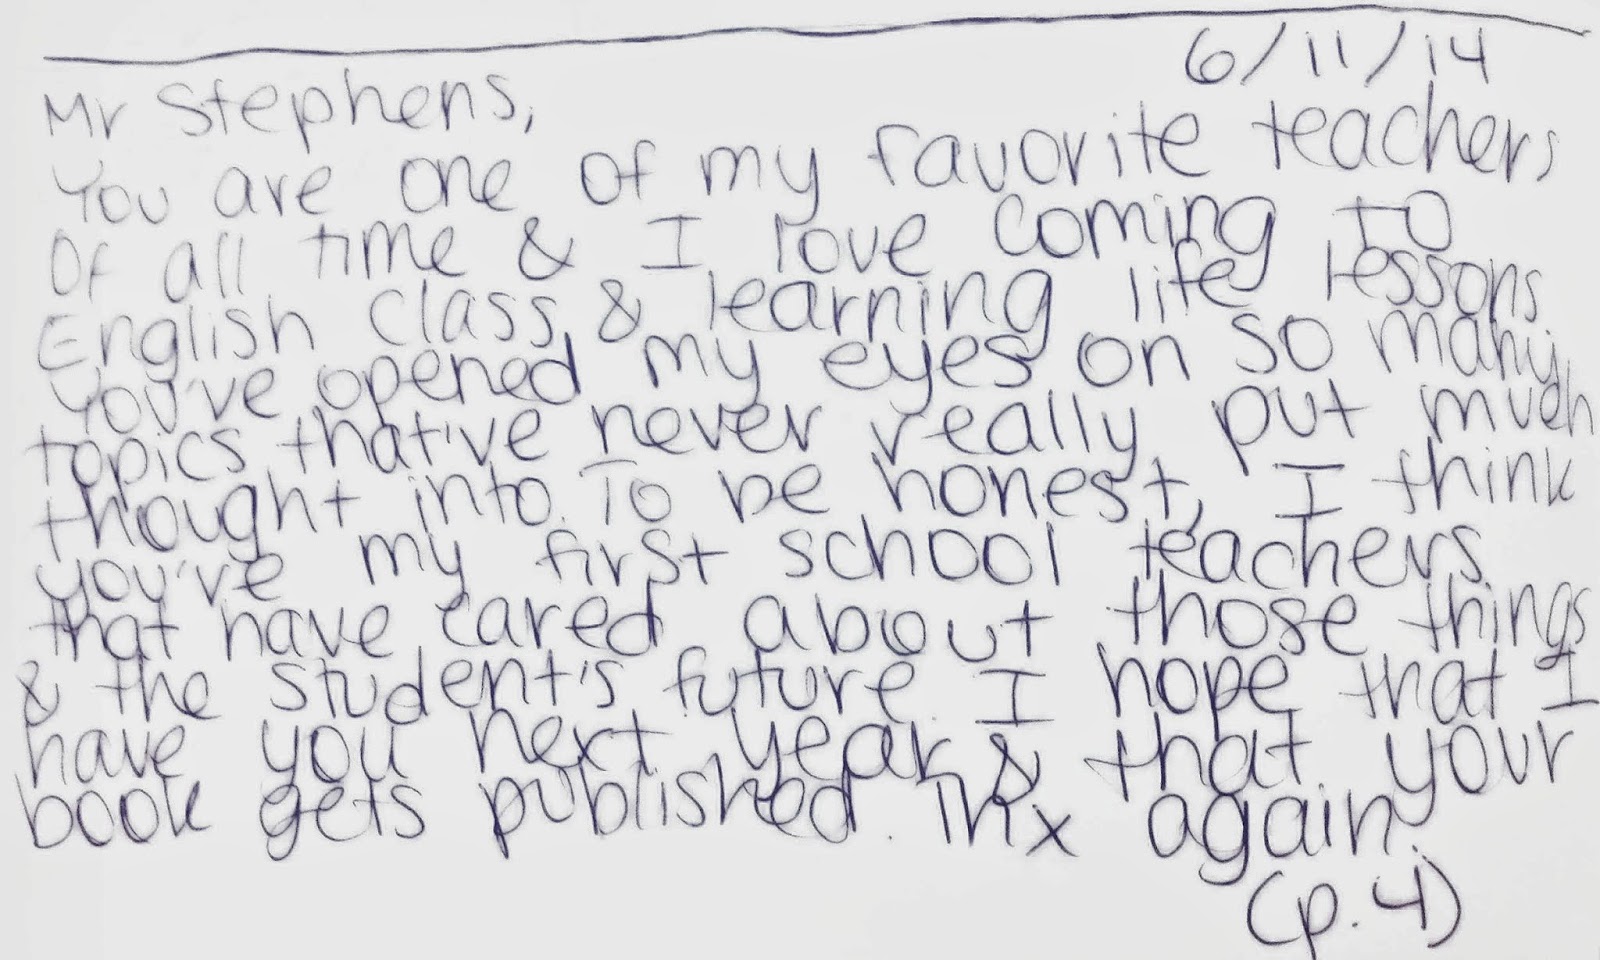 6/11/14
Mr Stephens,
You are one of my favorite teachers
Of all time & I love coming to
English class & learning life lessons.
You've opened my eyes on so many
topics that've never really put much
thought into. To be honest, I think
you've my first school teachers
that have cared about those things
& the student's future. I hope that I
have you next year & that your
book gets published. Thx again.
(p.4)